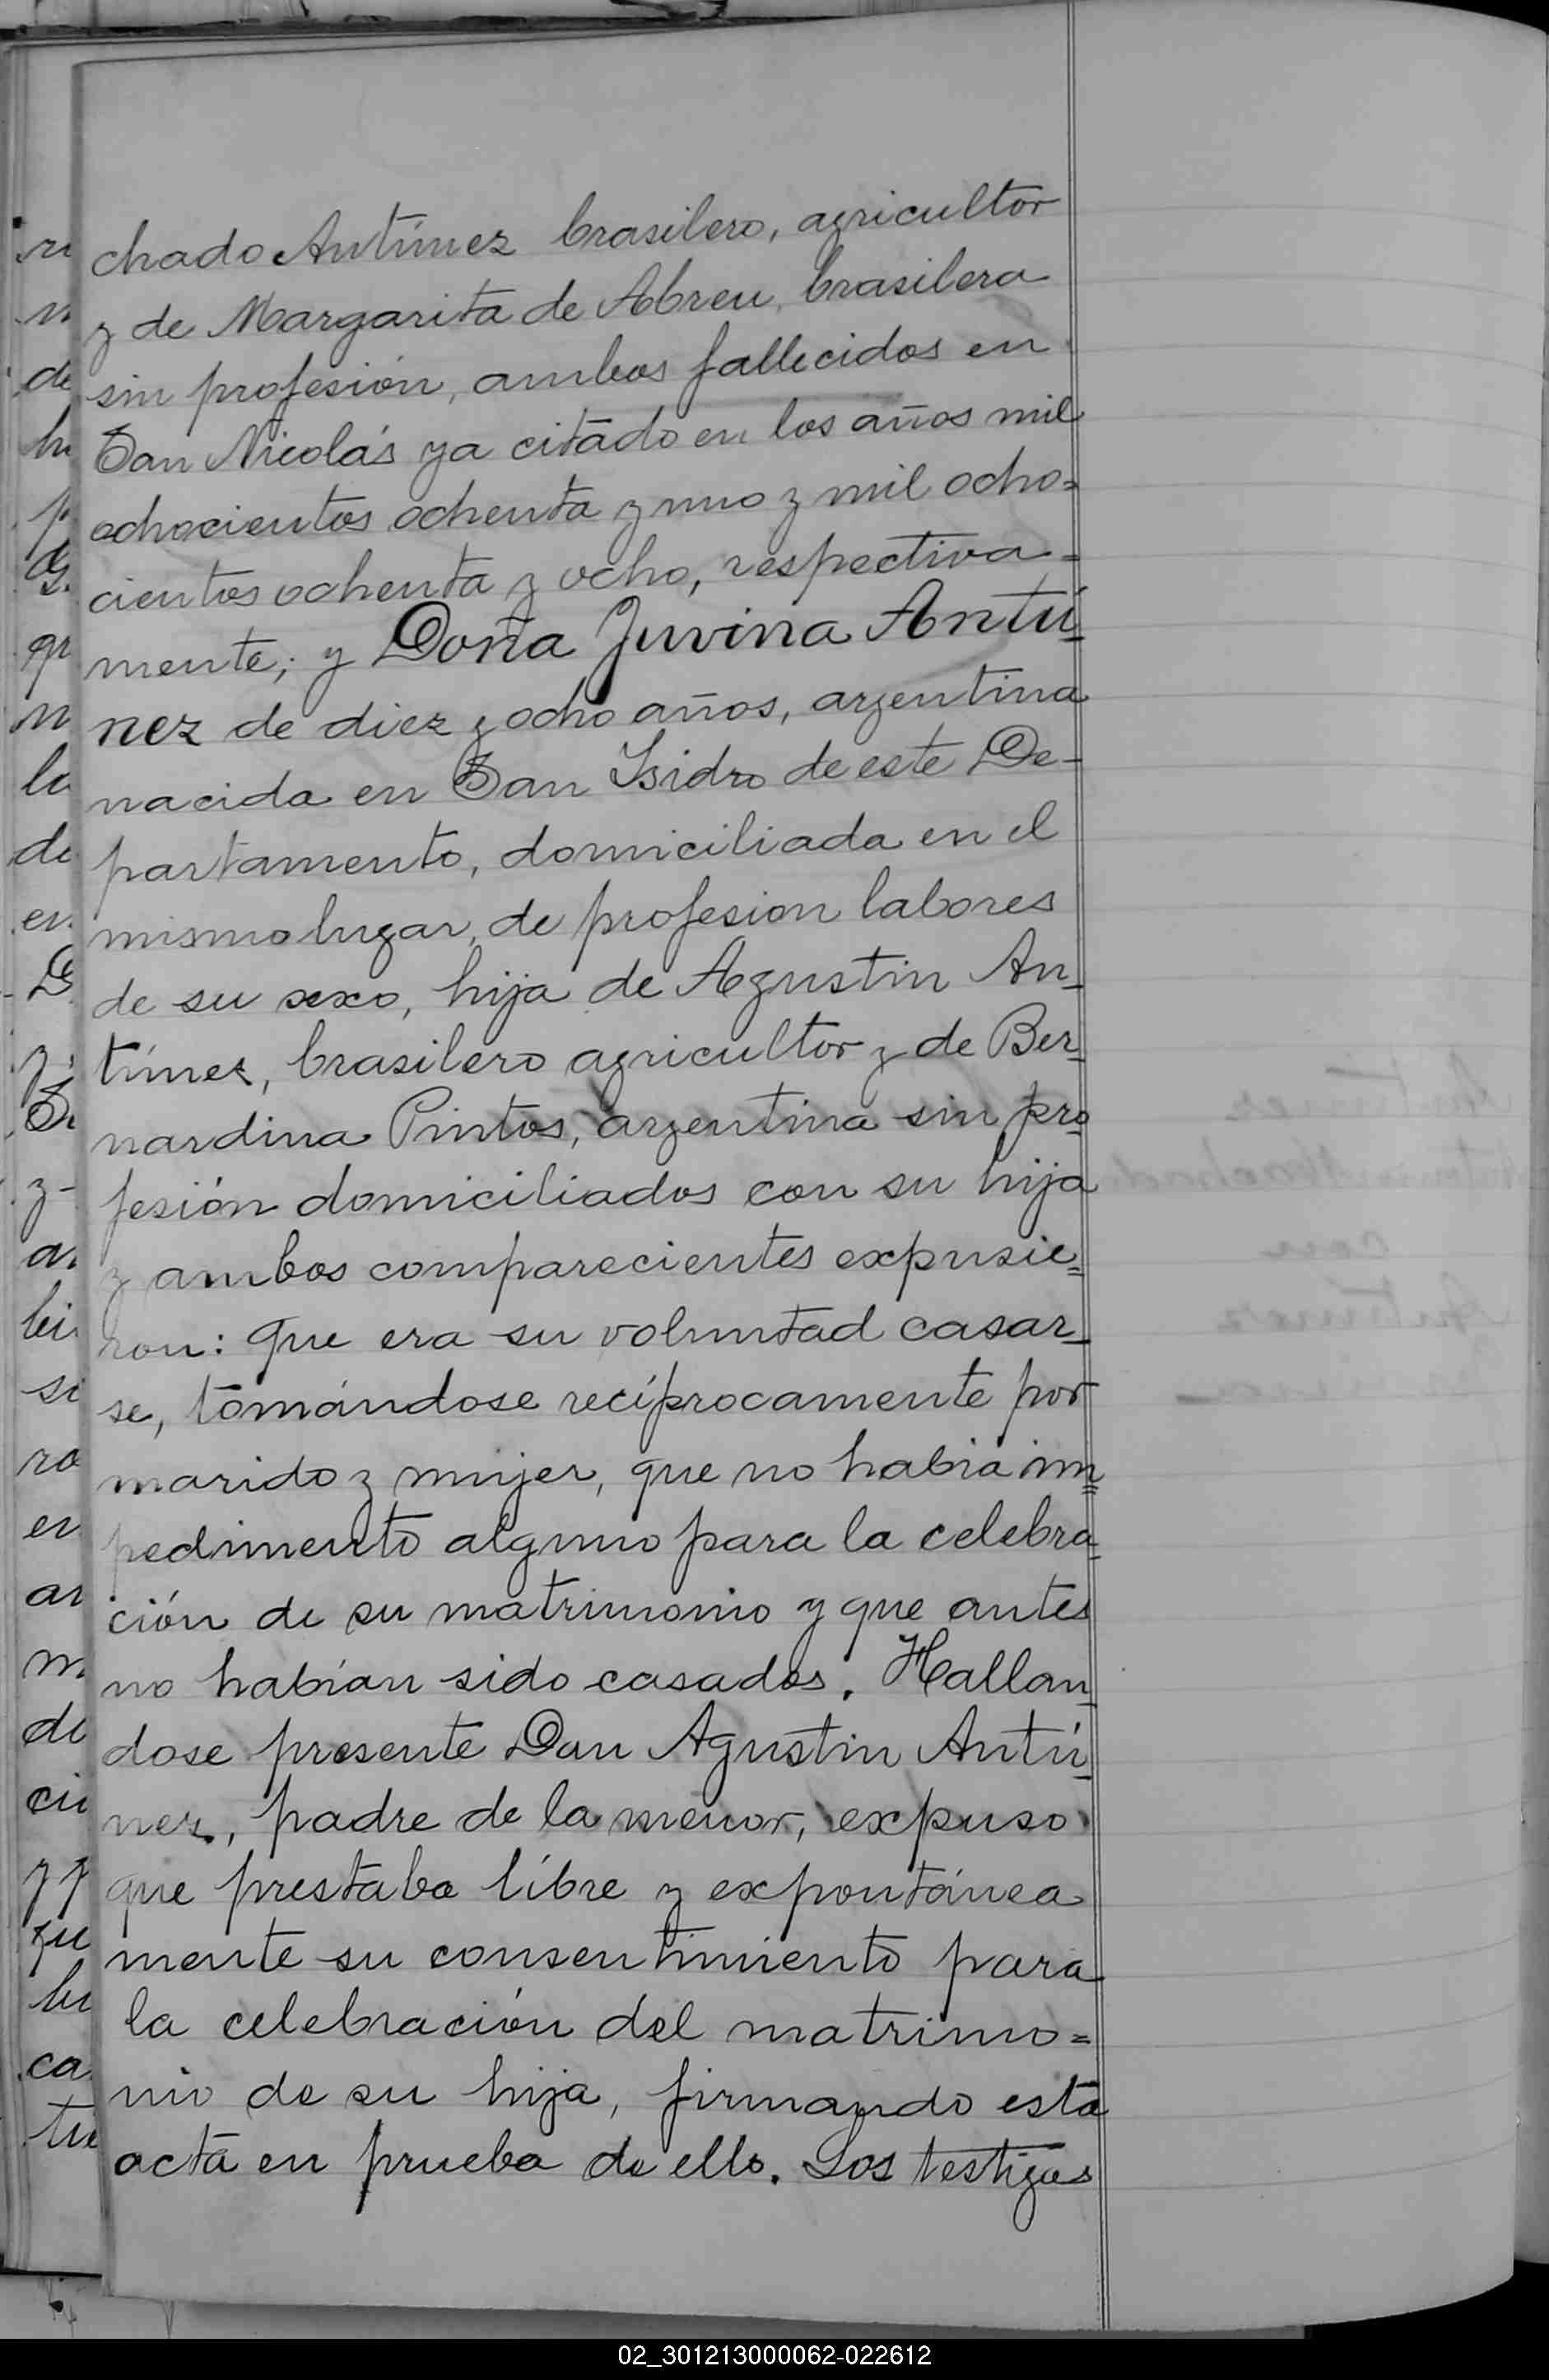 chado Antúnez brasilero, agricultor
y de Margarita de Abreu, brasilera
sin profesión, ambos fallecidos en
San Nicolás ya citado en los años mil
ochocientos ochenta y uno y mil ocho=
cientos ochenta y ocho, respectiva=
mente; y Doña Juvina Antú-
nez de diez y ocho años, argentina
nacida en San Isidro de este De-
partamento, domiciliada en el
mismo lugar, de profesion labores
de su sexo, hija de Agustin An-
túnez, brasilero agricultor y de Ber-
nardina Pintos, argentina sin pro-
fesión domiciliados con su hija
y ambos comparecientes expusie=
ron: que era su voluntad casar-
se, tomándose recíprocamente por
marido y mujer, que no habia im=
pedimento alguno para la celebra-
ción de su matrimonio y que antes
no habían sido casados. Hallan-
dose presente Don Agustin Antú-
nez, padre de la menor, expuso
que prestaba líbre y expontánea
mente su consentimiento para
la celebración del matrimo=
nio de su hija, firmando esta
acta en prueba de ello. Los testigos
02_301213000062-022612